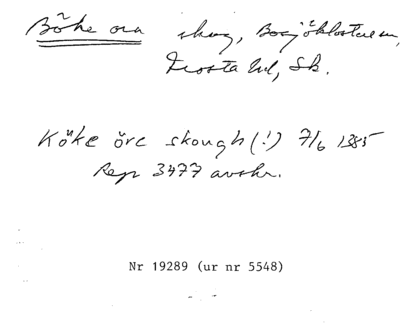 Böke ora skog, Bosjöklosters sn,
Frosta hd, Sk.
Köke öre skough (!) 7/6 1385
Rep 3477 avskr.
Nr 19289 (ur nr 5548)